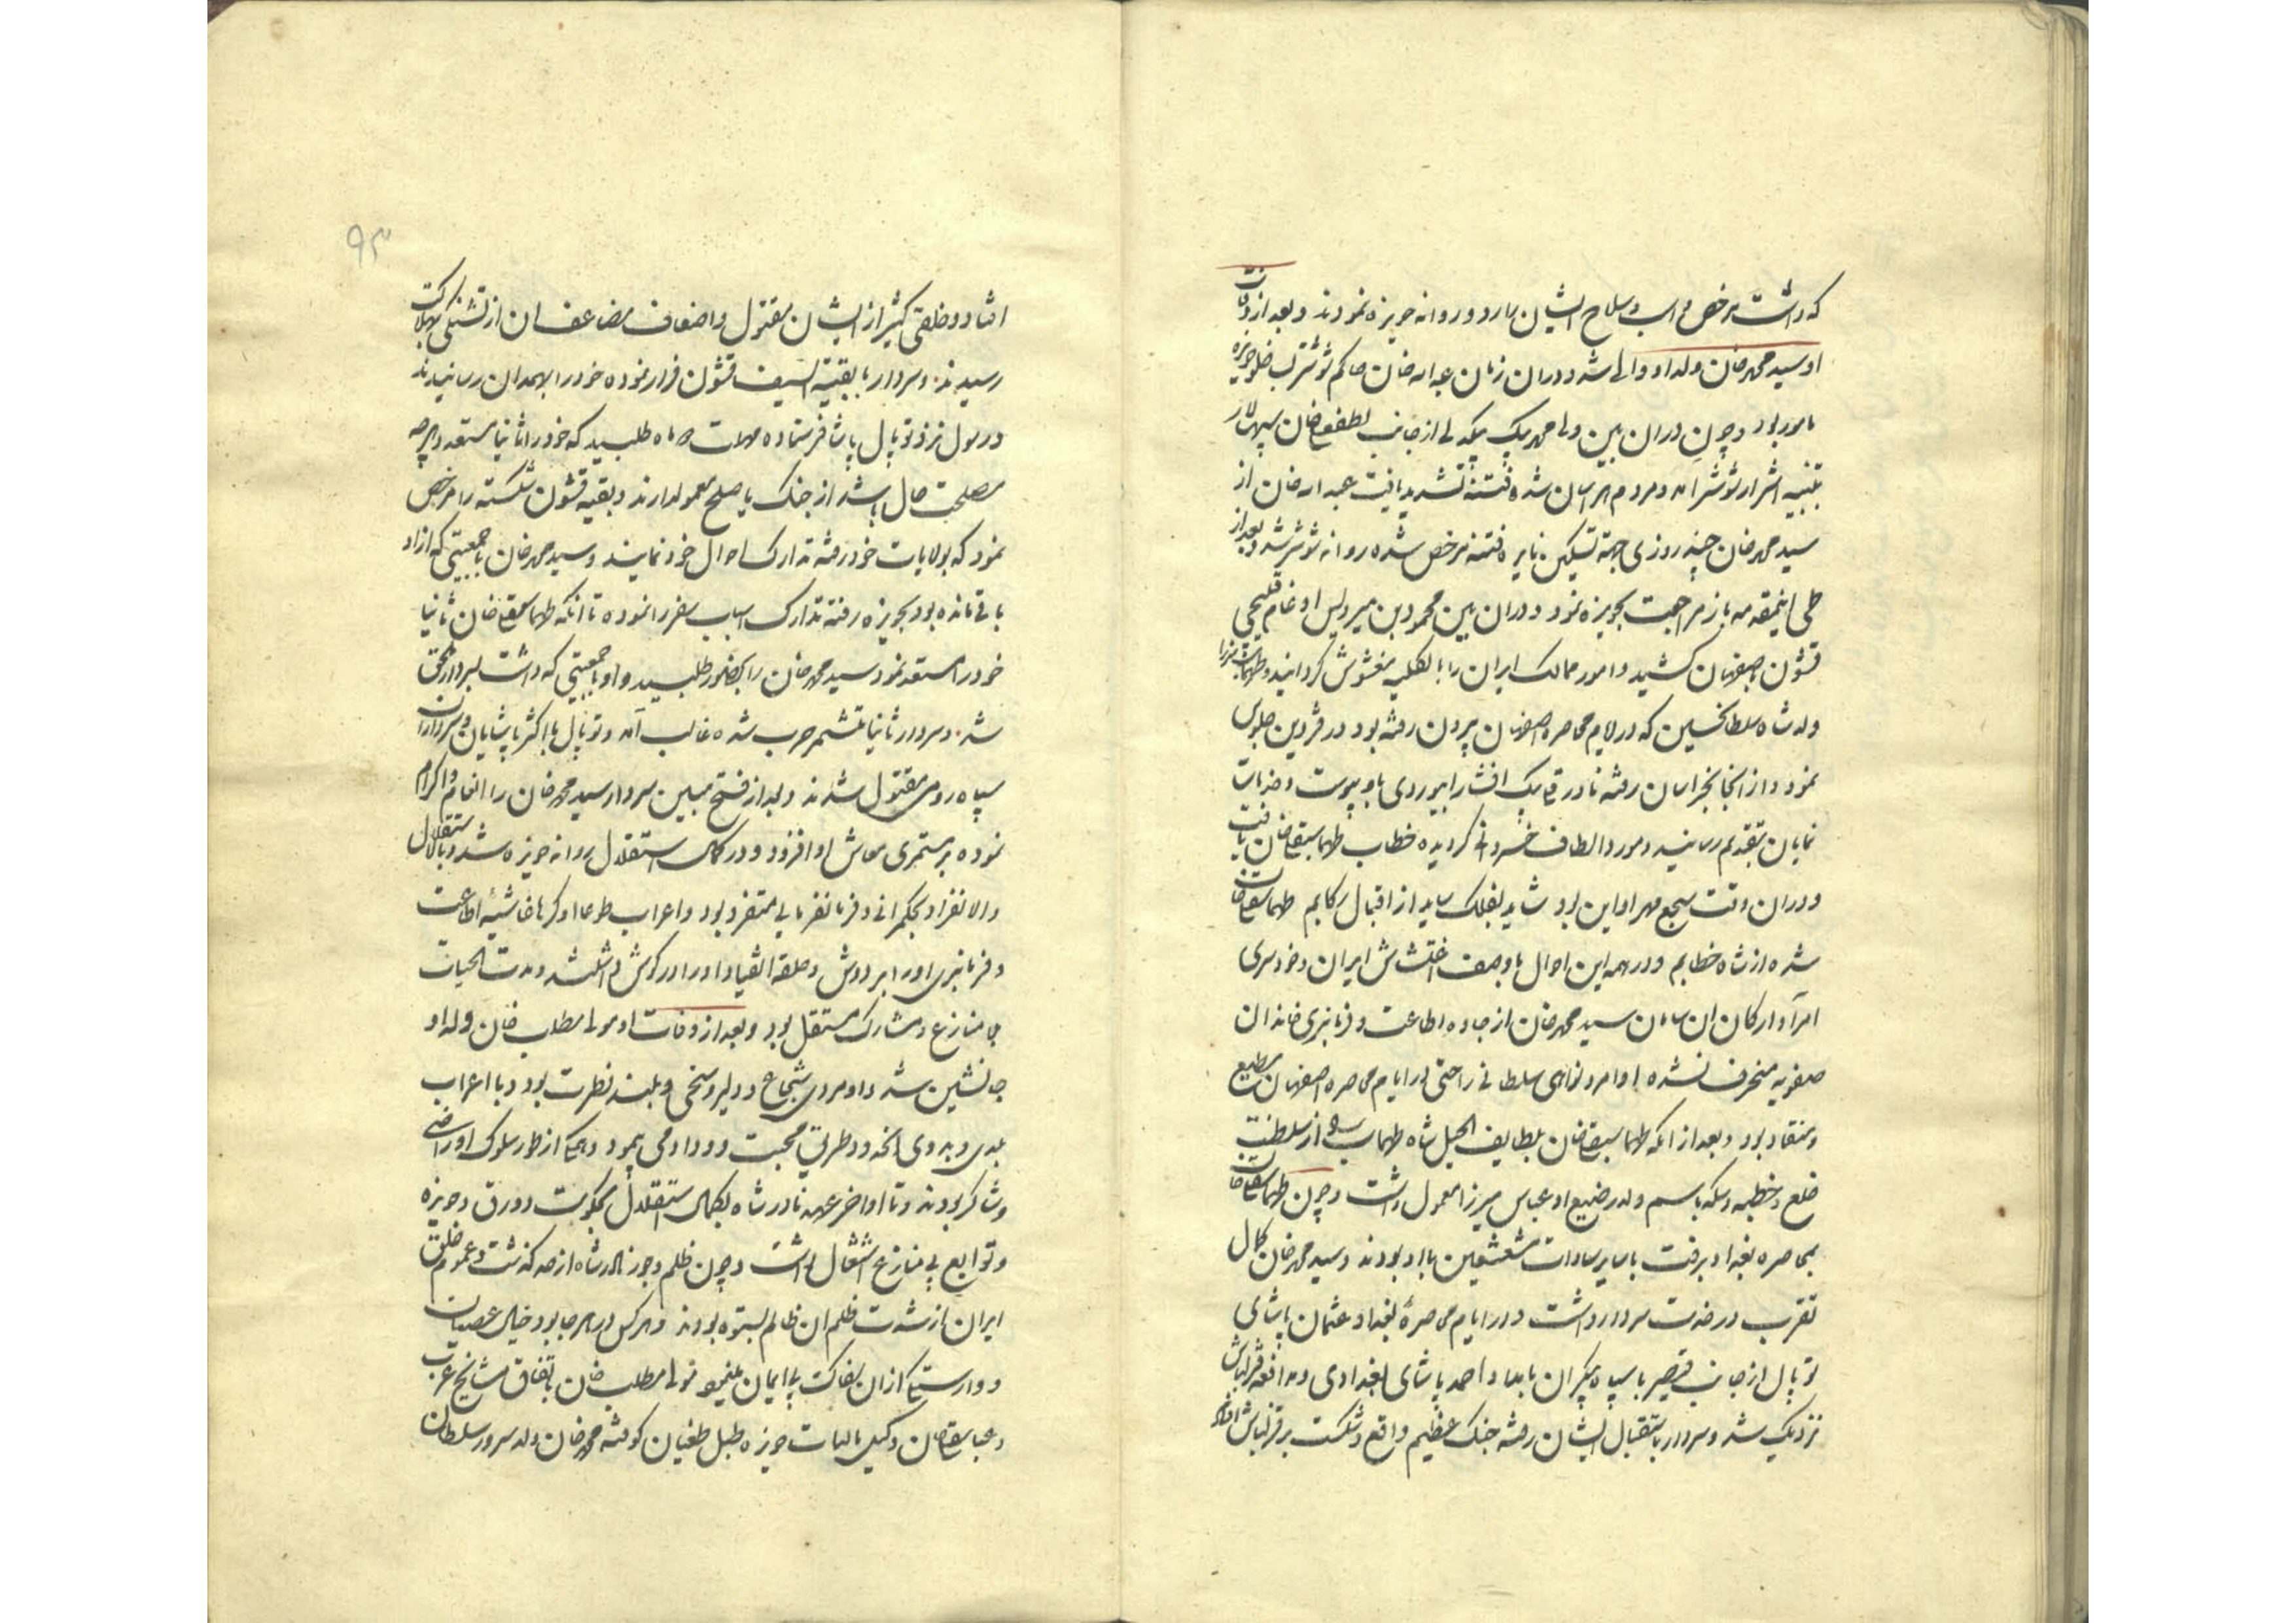 که داشت مرخص و اسب و سلاح ایشان را رد و روانه حویزه نمودند و بعد از وفات
او سید محمد خان ولد او والی شد و در ان زمان عبد اله خان حاکم شوشتر بضبط حویزه
مامور بود و چون در ان بین ولی محمد بیک بیکدلی از جانب لطفعلیخان سپهسالار
بتنبیه اشرار شوشتر امد و مردم هراسان شده فتنه تشدید یافت عبد اله خان از
سید محمد خان چند روزی جهة تسکین نایره فتنه مرخص شده روانه شوشتر شد و بعد از
طی اینمقدمه باز مراجعت بحویزه نمود و در ان بین محمود بن میرویس اوغام قلیجی
قشون باصفهان کشید و امور ممالک ایران را بالکلیه مغشوش کردانید و طهماسب میرزا
ولد شاه سلطانحسین که در ایام محاصره اصفهان بیرون رفته بود در قزوین جلوس
نمود و از انجا بخراسان رفته نادر قلی بیک افشار ابیوردی باو پیوست و خدمات
نمایان بتقدیم رسانید و مورد الطاف خسروانی کردیده خطاب طهماسبقلیخان یافت
و در ان وقت سجع مهر او این بود شاید بفلک ساید از اقبال رکابم طهماسبقلیخان
شده از شاه خطابم و در همه این احوال با وصف اغتشاش ایران و خودسری
امرآ و ارکان ان سامان سید محمد خان از جاده اطاعت و فرمانبری خاندان
صفویه منحرف نشده اوامر و نواهی سلطانی را حتی در ایام محاصره اصفهان مطیع
و منقاد بود و بعد از انکه طهماسبقلیخان بلطایف الحیل شاه طهماسب را از سلطنت
خلع و خطبه و سکه باسم ولد رضیع او عباس میرزا معمول داشت و چون طهماسبقلیخان
بمحاصره بغداد برفت با سایر سادات مشعشعین با او بودند و سید محمد خان کمال
تقرب در خدمت سردار داشت و در ایام محاصرهٔ بغداد عثمان پاشای
توپال از جانب قیصر با سپاه بیکران بامداد احمد پاشای بغدادی و مدافعه قزلباش
نزدیک شد و سردار باستقبال ایشان رفته جنک عظیم واقع و شکست بر قزلباش افتاد
۹۳
افتاد و خلقی کثیر از ایشان مقتول و اضعاف مضاعف ان از تشنکی بهلاکت
رسیدند و سردار با بقیة السیف قشون فرار نموده خود را بهمدان رسانیدند
و رسول نزد توپال پاشا فرستاده مهلت ماه طلبید که خود را ثانیا مستعد و بهرچه
مصلحت حال باشد از جنک یا صلح معمول دارند و بقیه قشون شکسته را مرخص
نمود که بولایات خود رفته تدارک احوال خود نمایند و سید محمد خان با جمعیتی که از او
باقی مانده بود بحویزه رفته تدارک اسباب سفر را نموده تا انکه طهماسبقلیخان ثانیا
خود را مستعد نمود سید محمد خان را بحضور طلبید و او با جمعیتی که داشت بسردار ملحق
شد و سردار ثانیا متشمر حرب شده غالب آمد و توپال با اکثر پاشایان و سرداران
سپاه رومی مقتول شدند و بعد از فتح مبین سردار سید محمد خان را انعام و اکرام
نموده بر مستمری معاش او افزود و در کمال استقلال روانه حویزه شد و بالاستقلال
والانفراد بحکمرانی و فرمانفرمایی متفرد بود و اعراب طوعا او کرها غاشیهٔ اطاعت
و فرمانبری او را بر دوش و حلقه انقیاد او را در کوش داشتند و مدت الحیات
بی منازع و مشارک مستقل بود و بعد از وفات او مولی مطلب خان ولد او
جانشین شد و او مردی شجاع و دلیر و سخی و بلند فطرت بود و با اعراب
بلدی و بدوی انحد و طریق محبت و وداد می پیمود و همکی از طور سلوک او راضی
و شاکر بودند و تا اواخر عهد نادر شاه بکمال استقلال بحکومت دورق و حویزه
و توابع بی منازع اشتغال داشت و چون ظلم و جور نادر شاه از حد کذشت و عموم خلق
ایران از شدت ظلم ان ظالم بستوه بودند و هر کس در هر جا بود خیال عصیان
و وارستکی از ان سفاکت بی ایمان مینمود مولی مطلب خان باتفاق مشایخ عرب
و عباسقلیخان وکیل مالیات حویزه طبل طغیان کوفته محمد خان ولد سرور سلطان